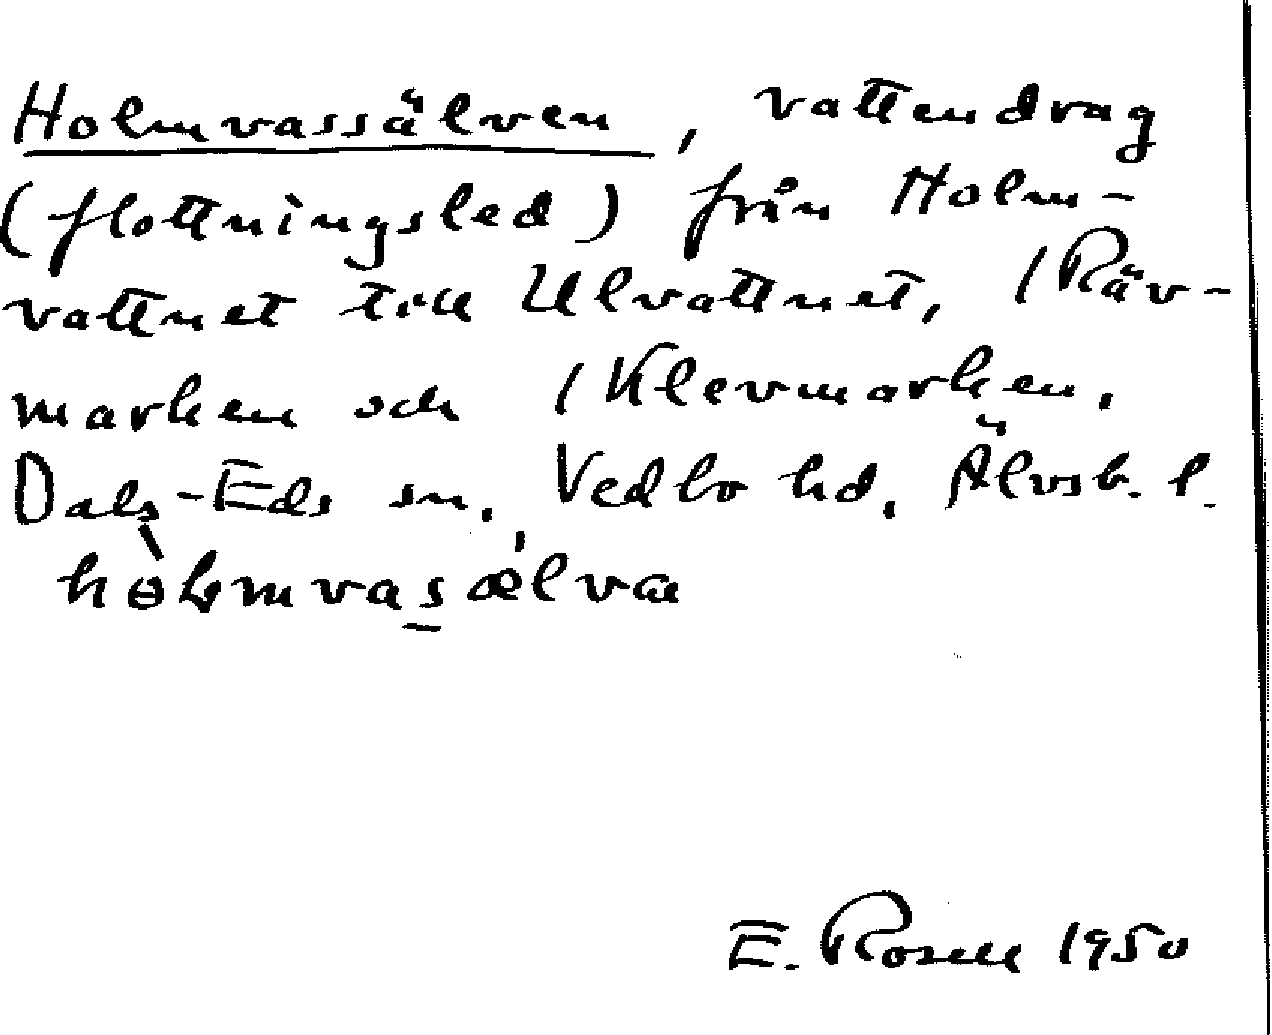 Holmvassälven, vattendrag
(flottningsled) från Holm-
vattnet till Ulvattnet, 1 Räv-
marken och 1 Klevmarken.
Dals-Eds sn, Vedbo hd, Älvsb. l.
E. Rosell 1950